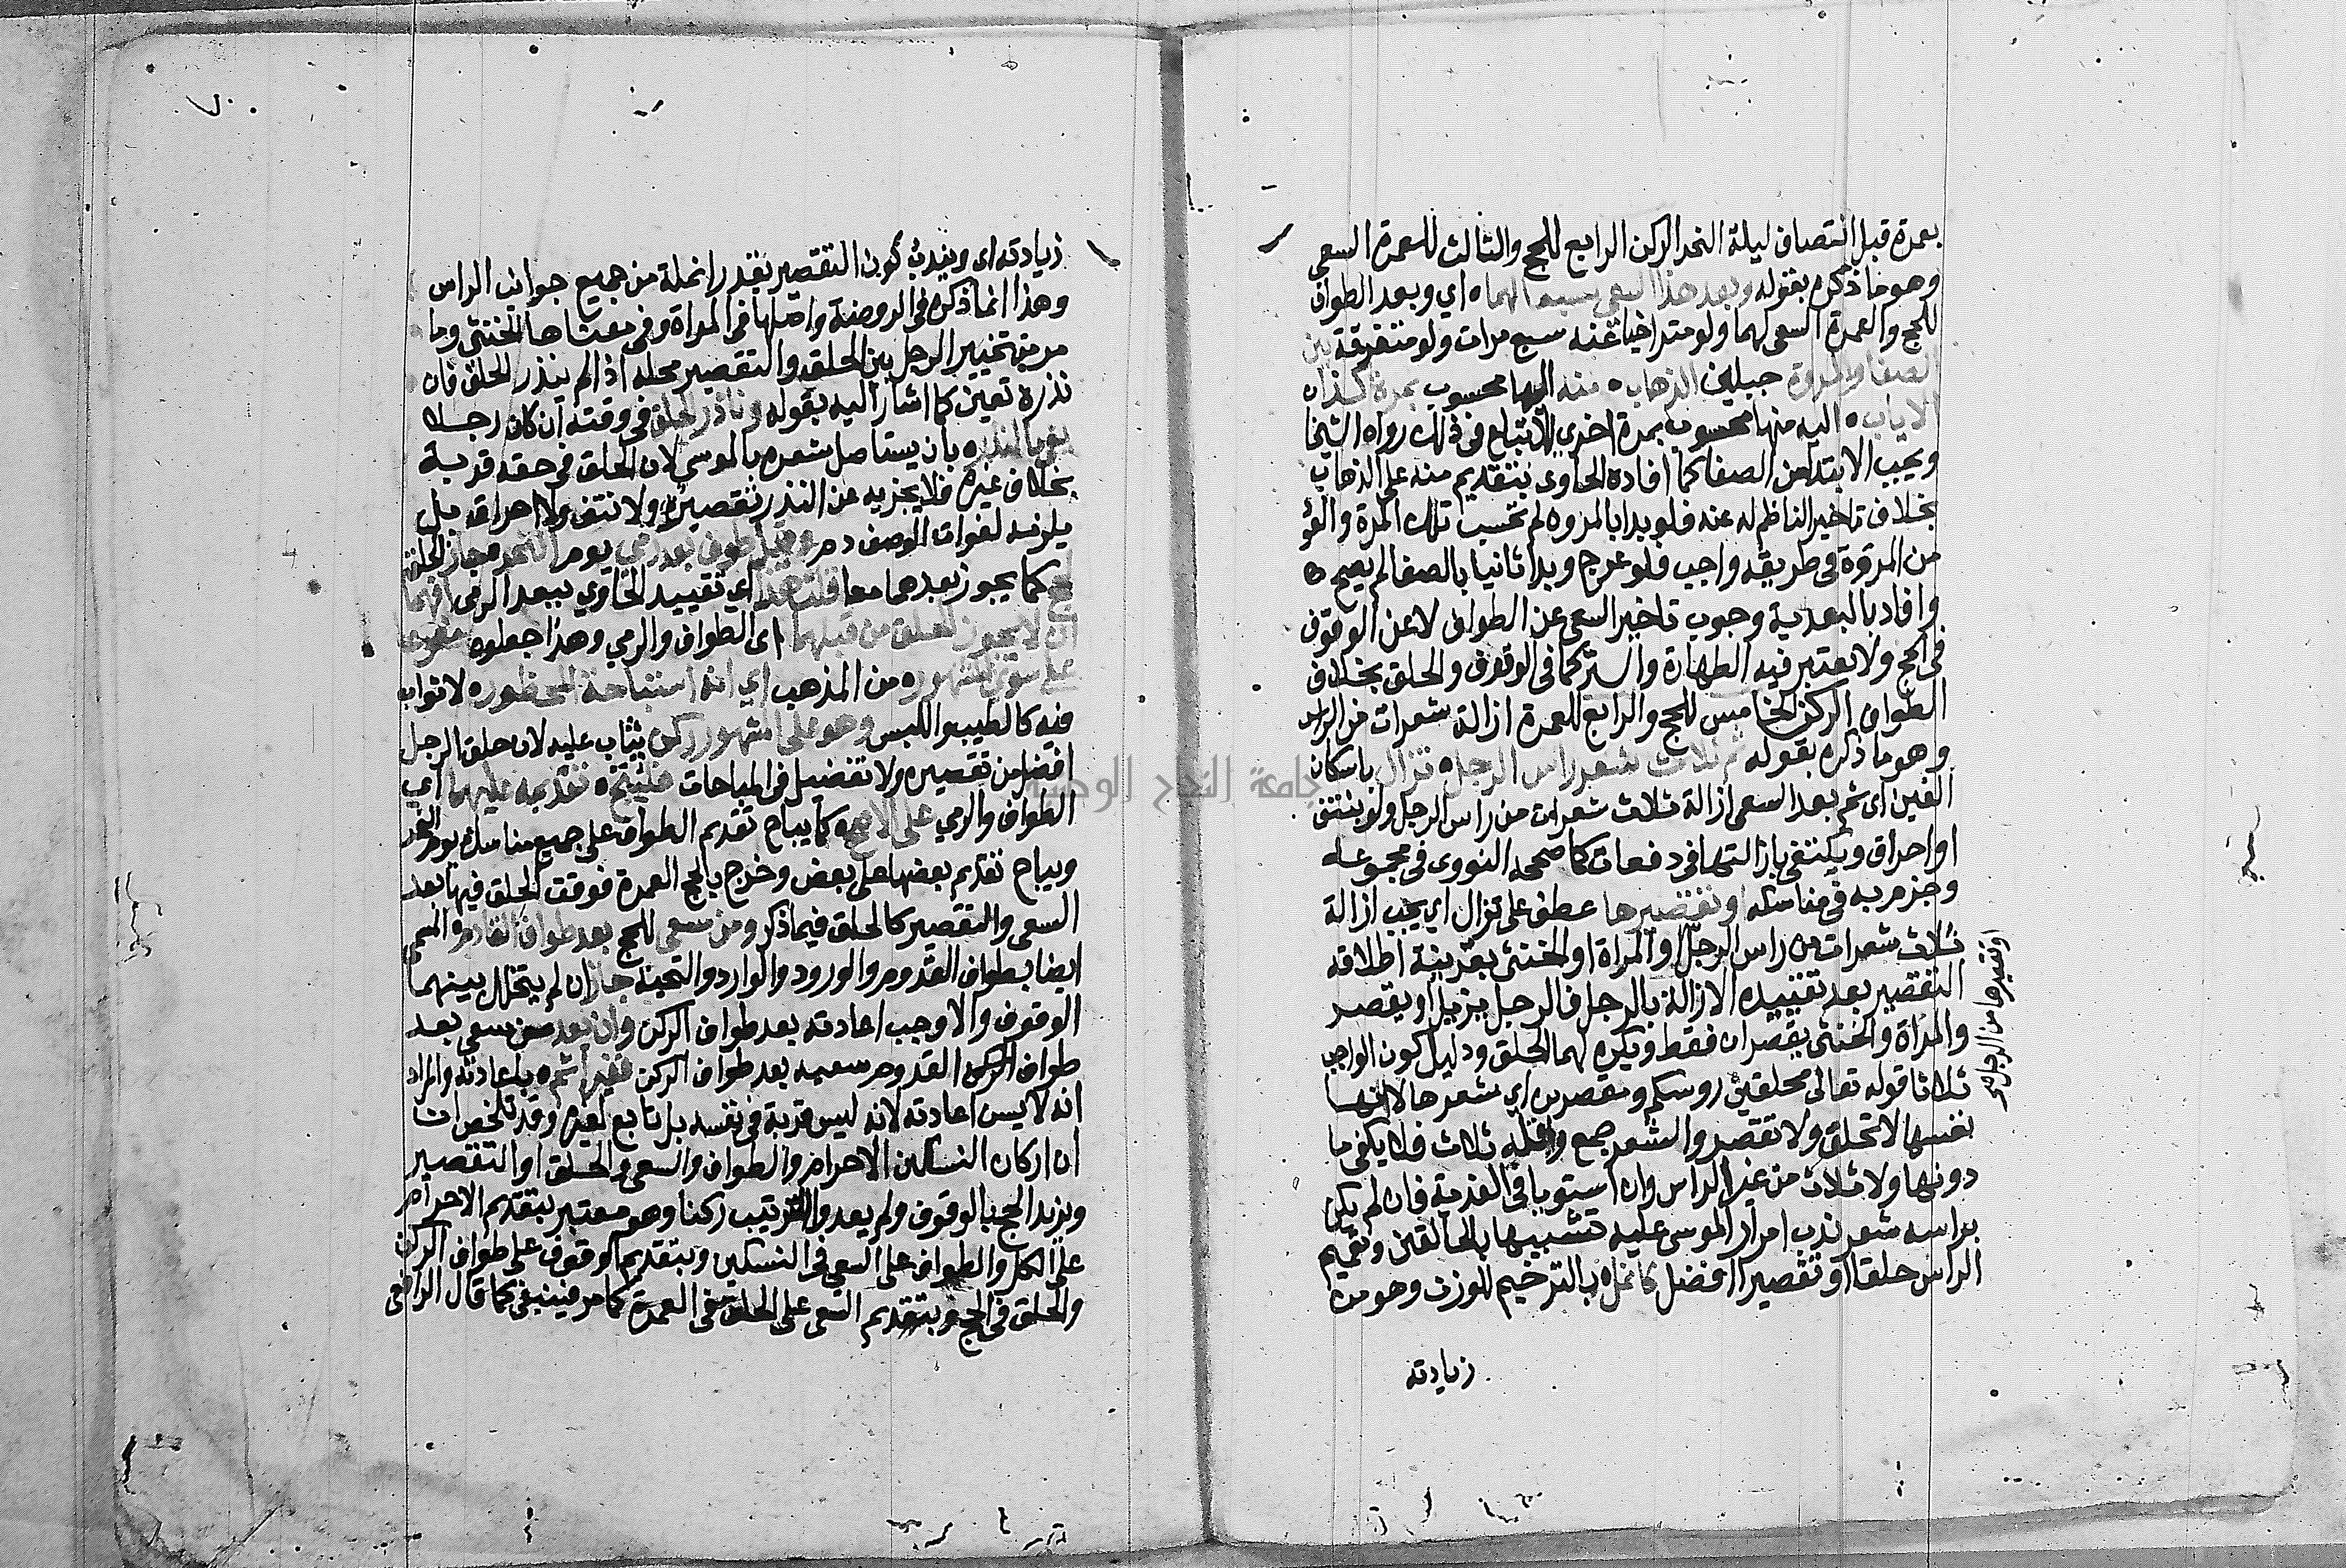 بعمرة قبل انتصاف ليلة النحر الركن الرابع للحج والثالث للعمرة السعي
وهو ما ذكره بقوله وبعد هذا السعي سبعا لهما ه اي وبعد الطواف
للحج والعمرة السعي لهما ولو متراخيا عنه سبع مرات ولو متفرقة بين
الصفا والمروة جبلين الذهاب ه منه اليها محسوب بمرة كذا ه
الاياب ه اليه منها محسوب بمرة اخري للاتباع في ذلك رواه الشيخا
ويجب الابتدا من الصفا كما افاده الحاوي بتقديم منه علي الذهاب
بخلاف تاخير الناظم له عنه فلو بدا بالمروه لم تحسب تلك المرة والعو
من المروة في طريقه واجب فلو عرج وبدا ثانيا بالصفا لم يصح ه
وافاد بالبعدية وجوب تاخير السعي عن الطواف لا عن الوقوف
في الحج ولا يعتبر فيه الطهارة والستر كما في الوقوف والحلق بخلاف
الطواف الركن الخامس للحج والرابع للعمرة ازالة شعرات من الراس
وهو ما ذكره بقوله ثم ثلاث شعر راس الرجل ه تزال باسكان
العين اي ثم بعد السعي ازالة ثلاث شعرات من راس الرجل ولو بنتف
او احراق ويكتفي بازالتها في دفعات كما صححه النووي في مجموعه
وجزم به في مناسكه او تقصيرها عطف علي تزال اي يجب ازالة
ثلاث شعرات من راس الرجل او المراة او الخنثي بقرينة اطلاقه
التقصير بعد تقييده الازالة بالرجل فالرجل يزيل او يقصر
والمراة والخنثي يقصران فقط ويكره لهما الحلق ودليل كون الواجب
ثلاثا قوله تعالي محلقين روسكم ومقصرين اي شعرها لانها
نفسها لا تحلق ولا تقصر والشعر جمع واقله ثلاث فلا يكفي ما
دونها ولا ثلاث من غير الراس وان استويا في الفدية فان لم يكن
براسه شعر ندب امرار الموسي عليه تشبيها بالحالقين وتعميم
الراس حلقا او تقصيرا افضل كانمله بالترخيم للوزن وهو من
زيادته
او تقصيرها من الرجل صح
زيادته اي ويندب كون التقصير بقدر انملة من جميع جوانب الراس
وهذا انما ذكره في الروضة واصلها في المراة وفي معناها الخنثي وما
مر من تخيير الرجل بين الحلق والتقصير محله اذا لم ينذر الحلق فان
نذره تعين كما اشار اليه بقوله وناذر الحلق في وقته ان كان رجلا
بان يستاصل شعره بالموسي لان الحلق في حقه قربة
بخلاف غيره فلا يجزيه عن النذر تقصيره ولا نتف ولا احراق بل
يلزمه لفوات الوصف دم وقبل طوف بعد رمي يوم النحر جاز الحلق
لحج كما يجوز بعدهما معا قلت هذا اي تقييد الحاوي ببعد الرمي افهما
ان لا يجوز الحلق من قبلهما اي الطواف والرمي وهذا جعلوه مفرعا
علي سوي المشهور ه من المذهب اي انه استباحة المحظور ه لا ثواب
فيه كالطيب واللبس وهو علي المشهور ركن يثاب عليه لان حلق الرجل
افضل من تقصيره ولا تفضيل في المباحات فليتجه تقديمه عليهما اي
الطواف والرمي علي الاصح ه كما يباح تقديم الطواف علي جميع مناسك يوم النحر
ويباح تقديم بعضها علي بعض وخرج بالحج العمرة فوقت الحلق فيها بعد
السعي والتقصير كالحلق فيما ذكر ومن سعي للحج بعد طواف القادم والمسمي
ايضا بطواف القدوم والورود والوارد والتحية جاز ان لم يتخلل بينهما
الوقوف والا وجب اعادته بعد طواف الركن وان يعد من سعي بعد
طواف القدوم سعيه بعد طواف الركن فغير اثم ه باعادته والمراد
انه لا يسن اعادته لانه ليس قربة في نفسه بل تابع لغيره وقد تلخص
ان اركان النسكين الاحرام والطواف والسعي والحلق او التقصير
ويزيد الحج بالوقوف ولم يعدوا الترتيب ركنا وهو معتبر بتقديم الاحرام
علي الكل والطواف علي السعي في النسكين وبتقديم الوقوف علي طواف الركن
والحلق في الحج وبتقديم السعي علي الحلق في العمرة كما مر فينبغي كما قال الرافعي
جامعة النجاح الوطنية